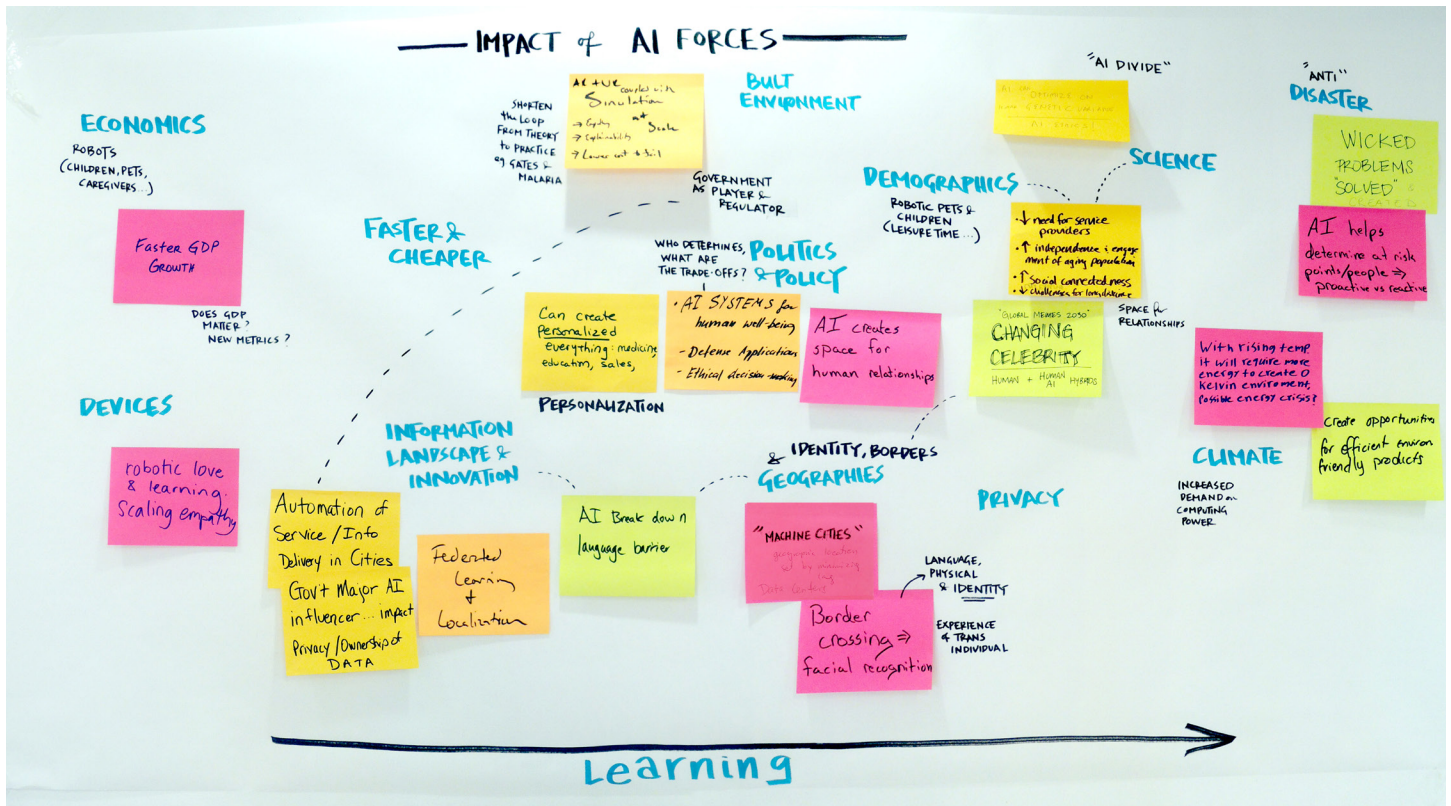 IMPACT of AI FORCES
ECONOMICS
ROBOTS
(CHILDREN, PETS,
CAREGIVERS...)
Faster GDP
GROWTH
DOES GDP
MATTER?
NEW METRICS?
DEVICES
robotic love
& learning.
Scaling empathy
FASTER &
CHEAPER
SHORTEN
the LOOP
FROM THEORY
to PRACTICE
eg GATES &
MALARIA
coupled with
Simulation
at
Scale
→ Sustainability
→ Lower cost to fail
BULT
ENVIRONMENT
GOVERNMENT
AS PLAYER &
REGULATOR
WHO DETERMINES,
WHAT ARE
THE TRADE-OFFS?
POLITICS
& POLICY
Can create
personalized
everything: medicine,
education, sales,
PERSONALIZATION
• AI SYSTEMS for
human well-being
- Defense Application
- Ethical decision-making
AI creates
space for
human relationships
INFORMATION
LANDSCAPE &
INNOVATION
Automation of
Service/Info
Delivery in Cities
Gov't Major AI
influencer... impact
Privacy/Ownership of
DATA
Federated
Learning
+
Localization
AI Break down
language barrier
& IDENTITY, BORDERS
GEOGRAPHIES
"MACHINE CITIES"
geographic
Data Centers
Border
crossing ⇒
facial recognition
LANGUAGE,
PHYSICAL
& IDENTITY
EXPERIENCE
of TRANS
INDIVIDUAL
PRIVACY
"AI DIVIDE"
SCIENCE
DEMOGRAPHICS
ROBOTIC PETS &
CHILDREN
(LEISURE TIME...)
• ↓ need for service
providers
• ↑ independence & engage
ment of aging population
• ↑ Social connectedness
↓ challenges for long distance
SPACE for
RELATIONSHIPS
"GLOBAL MEMES 2030"
CHANGING
CELEBRITY
HUMAN + HUMAN HYBRIDS
AI
"ANTI"
DISASTER
WICKED
PROBLEMS
"SOLVED" &
CREATED
AI helps
determine at risk
points/people ⇒
proactive vs reactive
With rising temp
it will require more
energy to create 0
kelvin enviroment,
possible energy crisis?
CLIMATE
INCREASED
DEMAND on
COMPUTING
POWER
create opportunities
for efficient environ
friendly products
Learning